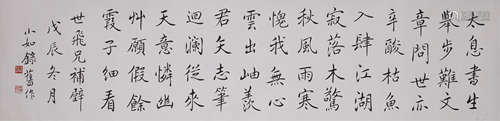 太息書生
舉步難文
章問世亦
辛酸枯魚
入肆江湖
寂落木驚
秋風雨寒
愧我無心
雲出岫羨
君矢志筆
迴瀾從來
天意憐幽
艸願假餘
霞子細看
世飛兄補壁
戊辰冬月
小如錄舊作